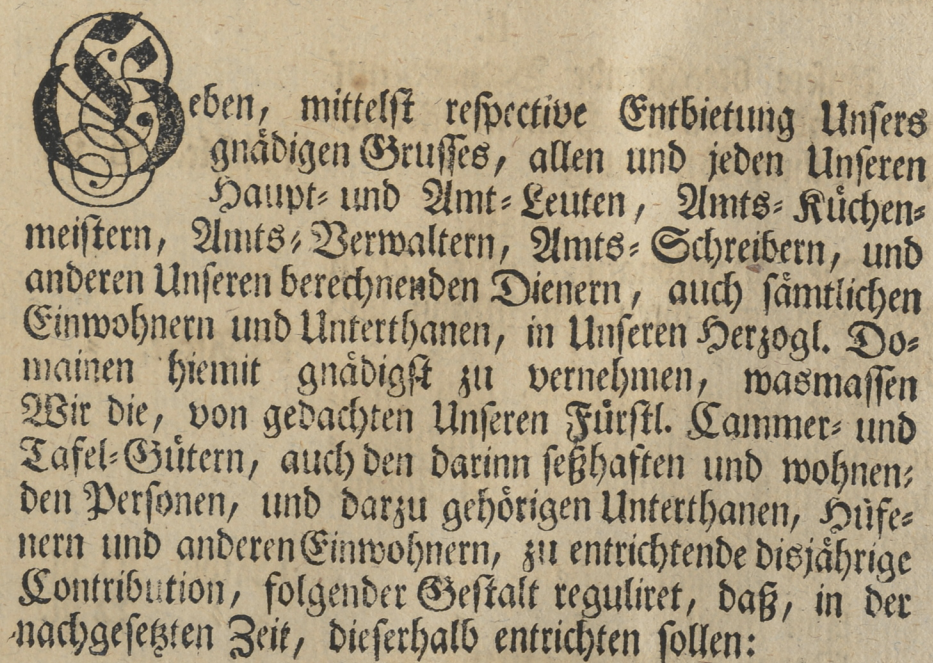 Geben, mittelst respective Entbietung Unsers
gnädigen Grusses, allen und jeden Unseren
Haupt- und Amt-Leuten, Amts-Küchen-
meistern, Amts-Verwaltern, Amts-Schreibern, und
anderen Unseren berechnenden Dienern, auch sämtlichen
Einwohnern und Unterthanen, in Unseren Herzogl. Do-
mainen hiemit gnädigst zu vernehmen, wasmassen
Wir die, von gedachten Unseren Fürstl. Cammer- und
Tafel-Gütern, auch den darinn seßhaften und wohnen-
den Personen, und darzu gehörigen Unterthanen, Hüfe-
nern und anderen Einwohnern, zu entrichtende disjährige
Contribution, folgender Gestalt reguliret, daß, in der
nachgesetzten Zeit, dieserhalb entrichten sollen: